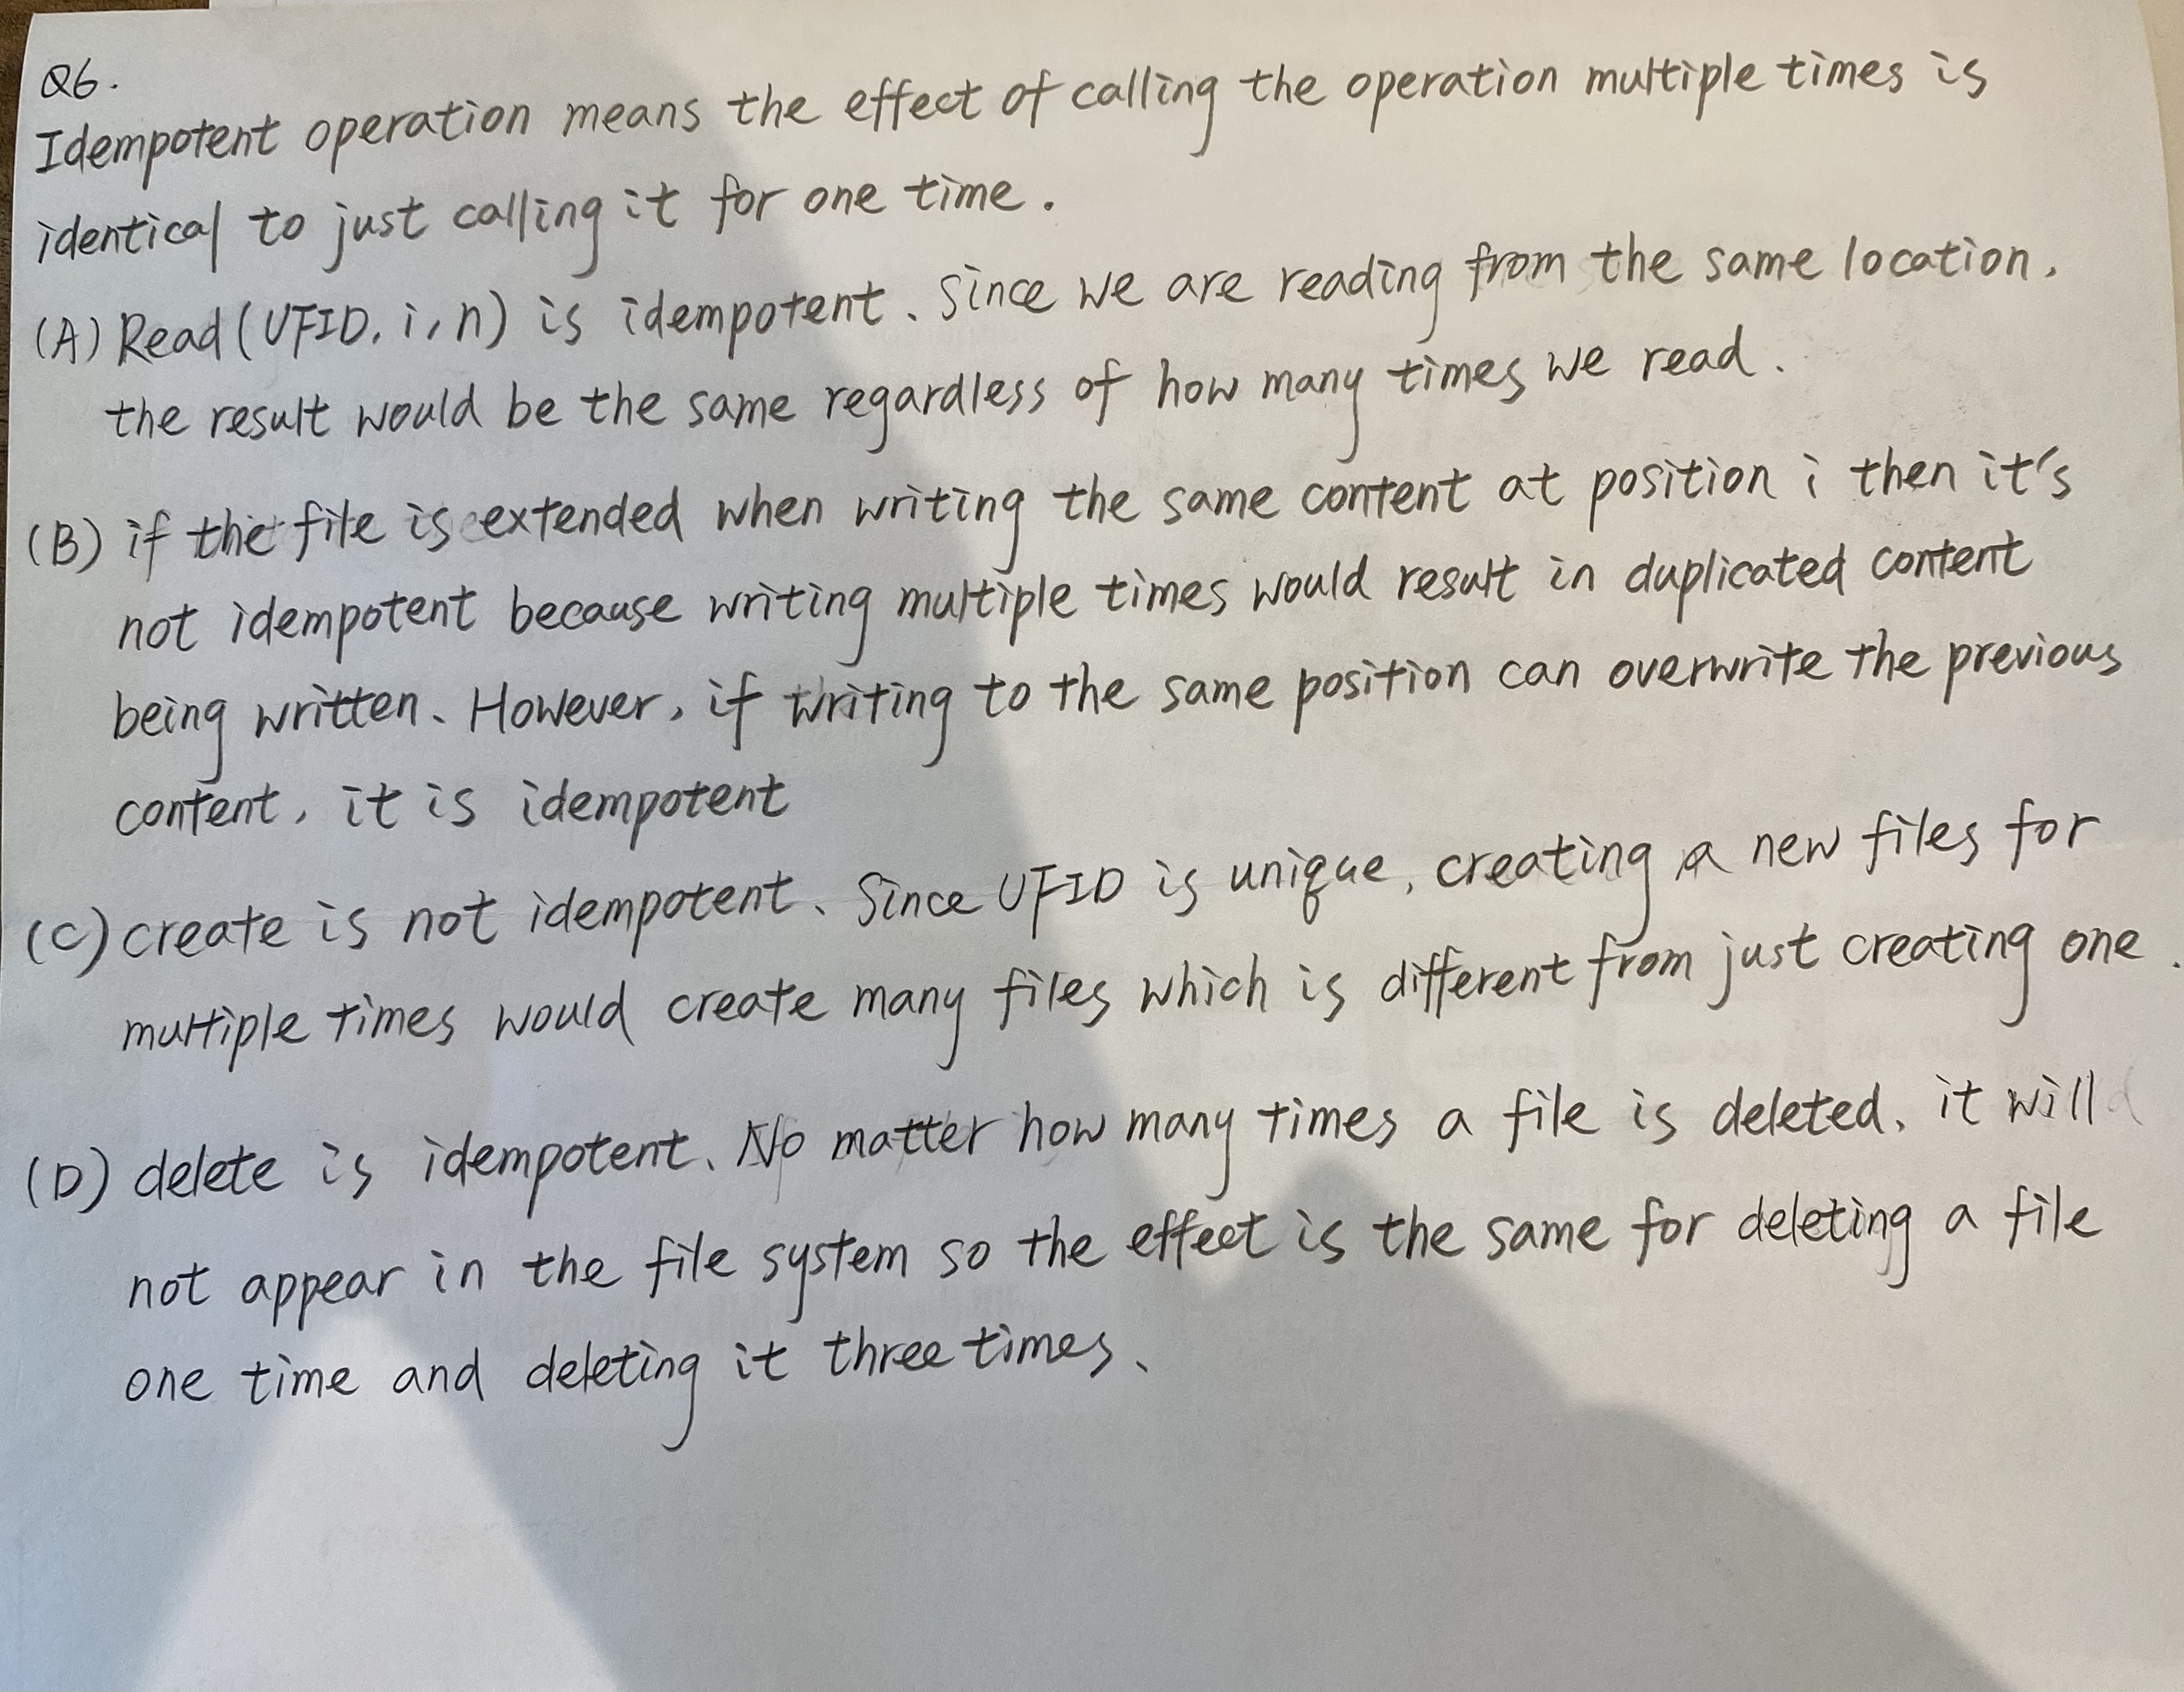 Q6.
Idempotent operation means the effect of calling the operation multiple times is
identical to just calling it for one time.
(A) Read (UFID, i, n) is idempotent. Since we are reading from the same location,
the result would be the same regardless of how many times we read.
(B) if the file is extended when writing the same content at position i then it's
not idempotent because writing multiple times would result in duplicated content
being written. However, if writing to the same position can overwrite the previous
content, it is idempotent
(C) create is not idempotent. Since UFID is unique, creating a new files for
multiple times would create many files which is different from just creating one.
(D) delete is idempotent. No matter how many times a file is deleted, it will
not appear in the file system so the effect is the same for deleting a file
one time and deleting it three times.